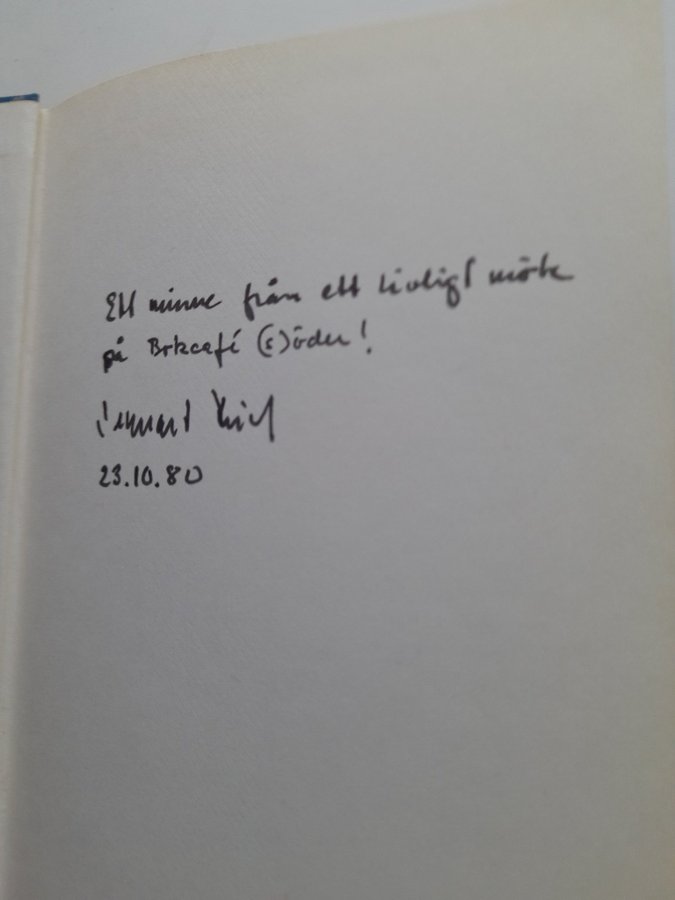 Ett minne från ett livligt möte
på Bokcafé (s)öder!
Lennart
23.10.80